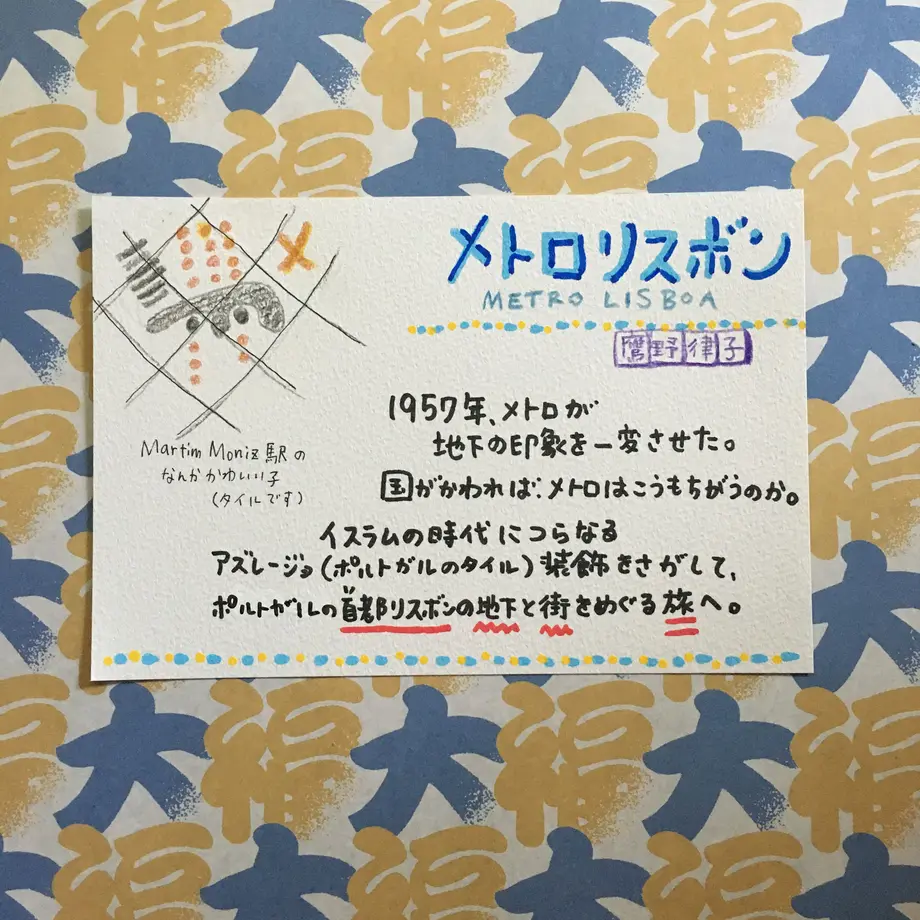 メトロリスボン
METRO LISBOA
鷹野律子
1957年、メトロが
地下の印象を一変させた。
国がかわれば、メトロはこうもちがうのか。
イスラムの時代につらなる
アズレージョ(ポルトガルのタイル)装飾をさがして、
ポルトガルの首都リスボンの地下と街をめぐる旅へ。
Martim Moniz駅の
なんかかわいい子
(タイルです)
大福大福大福
大福大福大福
大福大福大福
大福大福大福